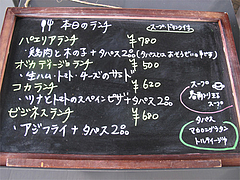 本日のランチ
スープ・ドリンク付
パエリアランチ ¥780
・鶏肉と木の子 + タパス2品
ボカディージョランチ ¥500
・生ハム・トマト・チーズのサンド
コカランチ ¥620
・ツナとトマトのスペインピザ + タパス2品
ビジネスランチ ¥680
・アジフライ + タパス2品
スープ
タパス
マカロニグラタン
トルティージャ